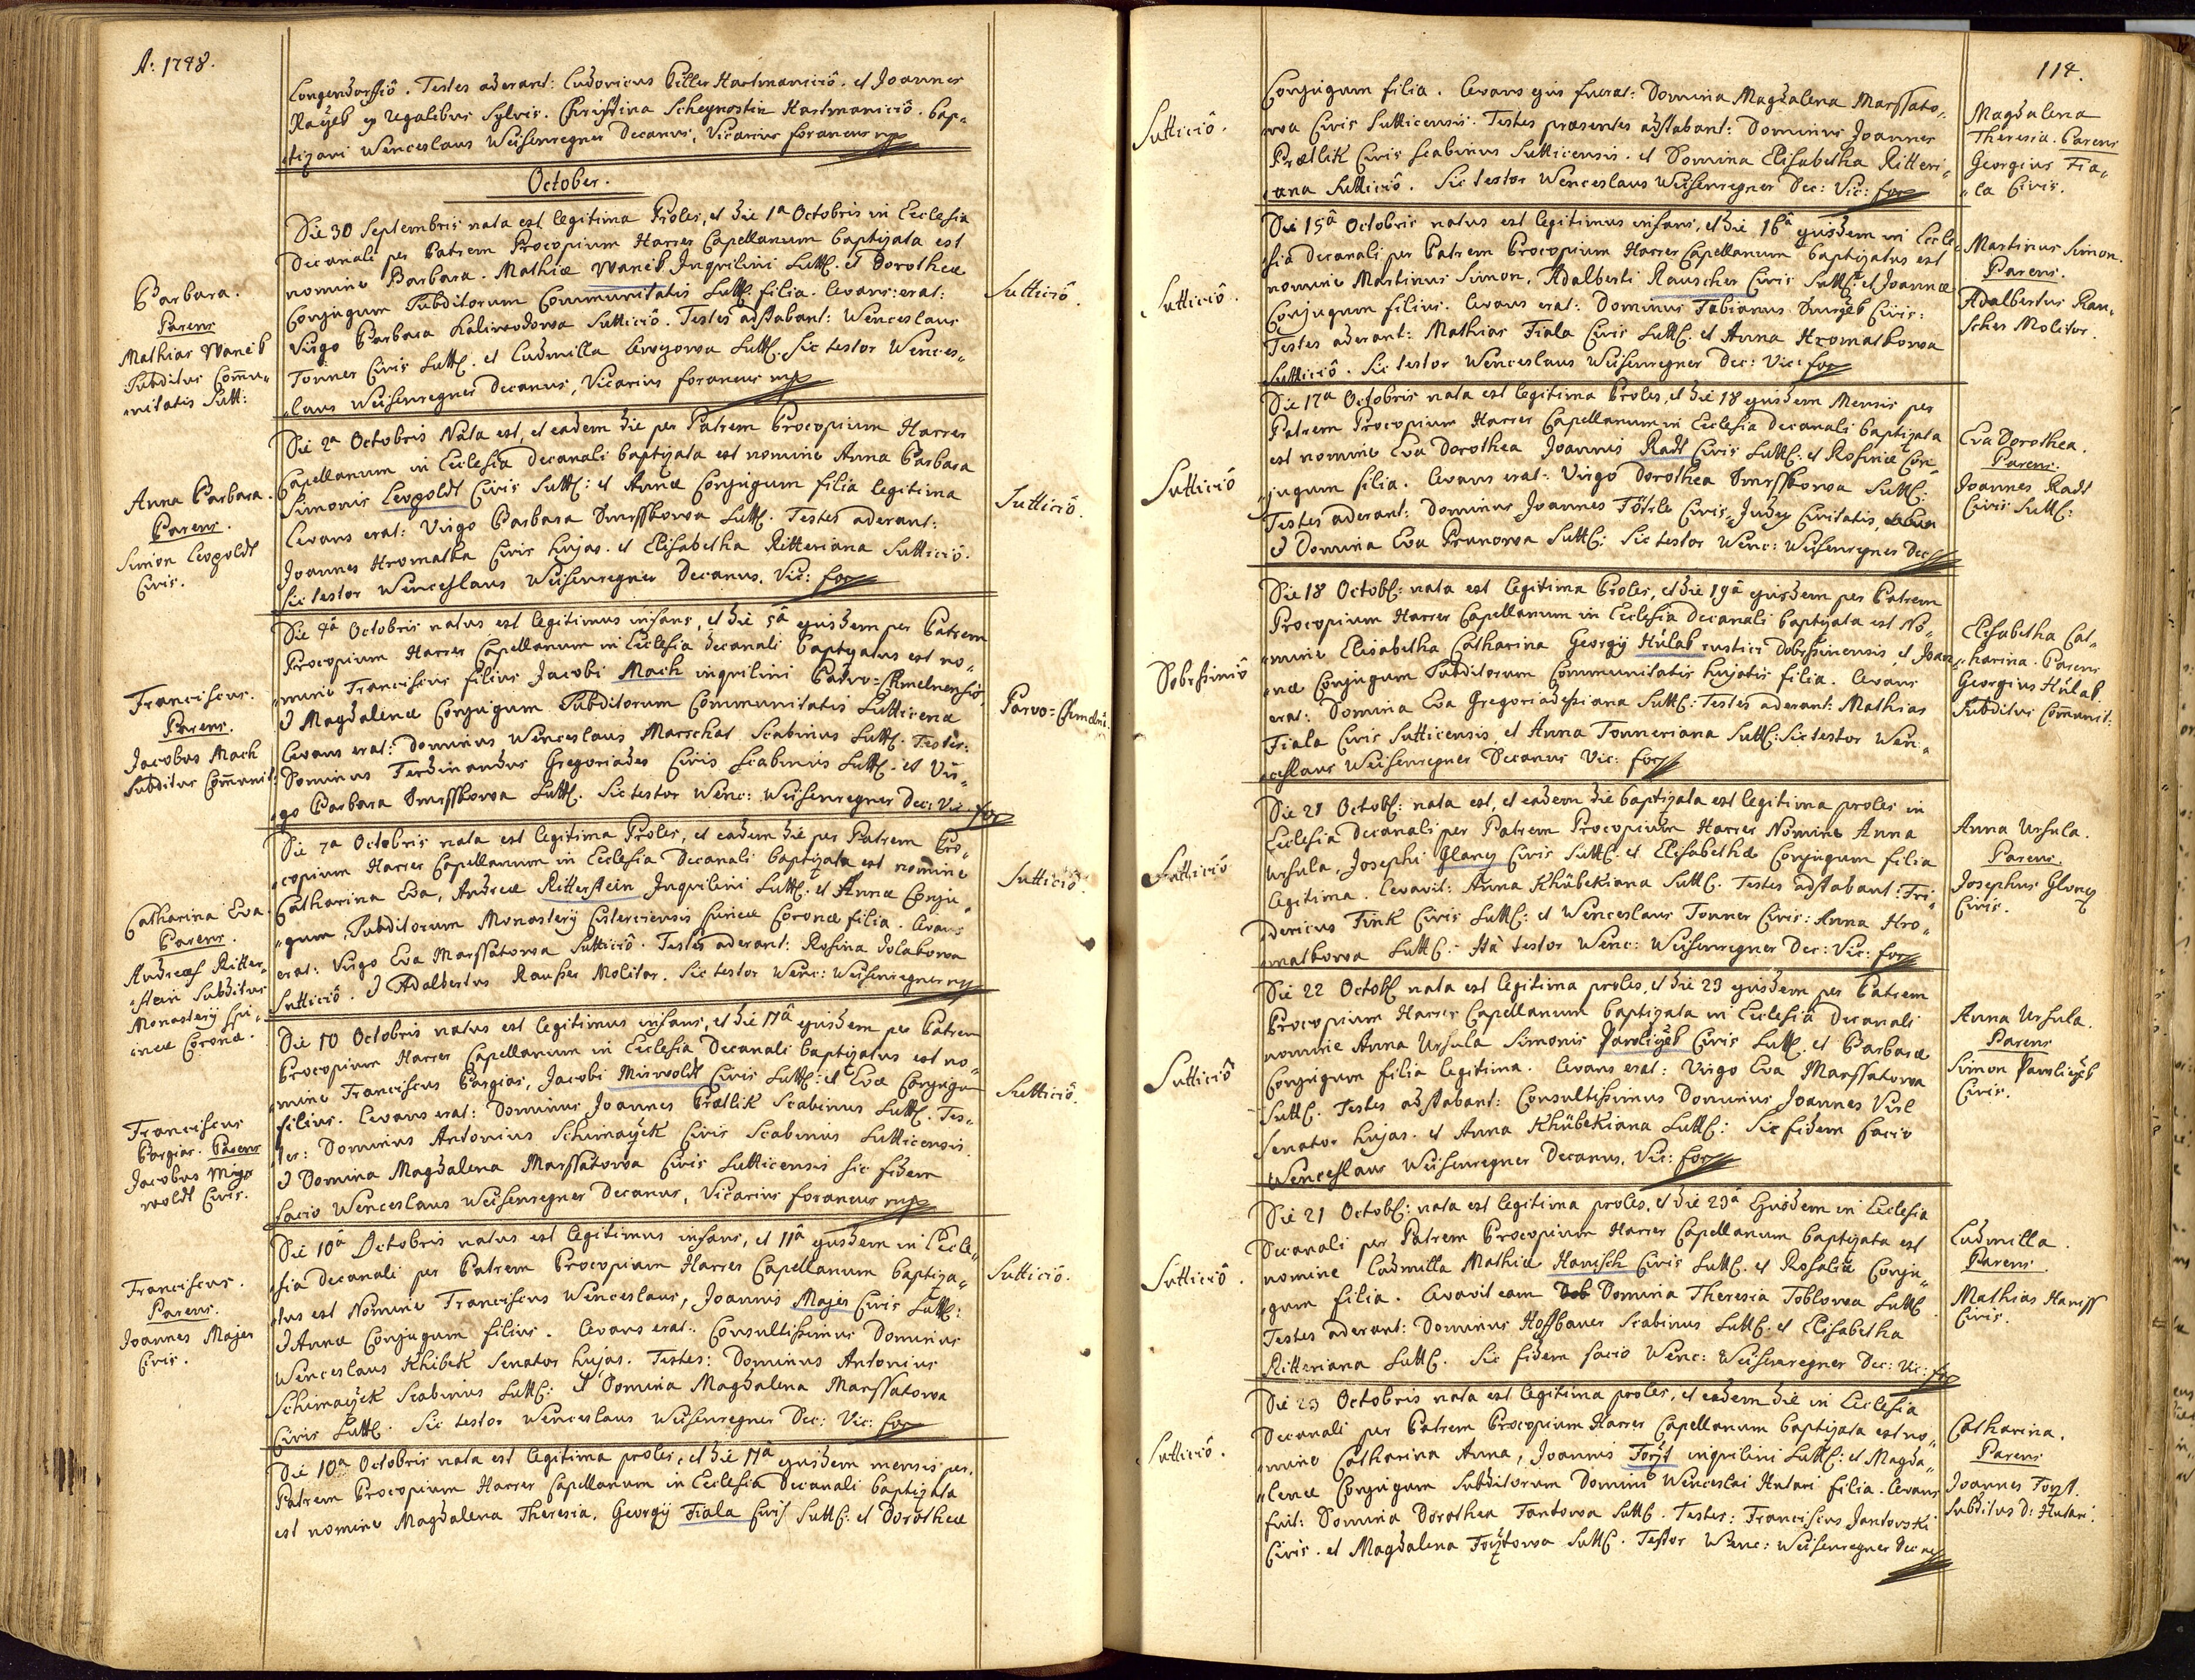 A: 1748.
Longendorffiô. Testes aderant: Ludovicus Pitter Hartmaniciô. et Joannes
Rayeb ex Regalibus Sylvis. Christina Hartmaniciô. bap„
„tizavi Wenceslaus Weisenregner Decanus, Vicarius foraneus mp
October.
Barbara.
Parens
Mathias Waneb
Subditus Comu„
„nitatis Sutt:
Die 30 Septembris nata est legitima Proles, et die 1a Octobris in Ecclesia
Decanali per Patrem Procopium Harrer Capellanum baptizata est
nomine Barbara. Mathiæ Waneb Inquilini Sutt: et Dorotheæ
Conjugum Subditorum Communitatis Sutt: filia. Levans: erat:
Virgo Barbara Kaliwodowa Sutticiô. Testes adstabant: Wenceslaus
Tonner Civis Sutt: et Ludmilla Sutt: Sic testor Wences„
„laus Weisenregner Decanus, Vicarius foraneus mp
Sutticiô.
Anna Barbara.
Parens.
Simon Leopoldt
Civis.
Die 2a Octobris Nata est, et eadem die per Patrem Procopium Harrer
Capellanum in Ecclesia Decanali baptizata est nomine Anna Barbara
Simonis Leopoldt Civis Sutt: et Annæ Conjugum filia legitima
Levans erat: Virgo Barbara Smrsskowa Sutt: Testes aderant:
Joannes Hromatka Civis hujas. et Elisabetha Ritteriana Sutticiô.
Sic testor Wenceslaus Weisenregner Decanus. Vic: for
Sutticiô.
Franciscus.
Parens.
Jacobus Mach
Subditus Comunit:
Die 4â Octobris natus est legitimus infans, et die 5â ejusdem per Patrem
Procopium Harrer Capellanum in Ecclesia Decanali baptizatus est no„
„mine Franciscus filius Jacobi Mach inquilini Parvo=Chmelnensiô
& Magdalenæ Conjugum Subditorum Communitatis Sutticenæ
Levans erat: Dominus Wenceslaus Marschat Scabinus Sutt: Testes:
Dominus Ferdinandus Gregoriades Civis Scabinus Sutt: et Vir„
„go Barbara Smrsskowa Sutt: Sic testor Wenc: Weisenregner Dec: Vic. for
Parvo=Chmelni.
Catharina Eva.
Parens.
Andreas Ritter„
„stein Subditus
Monasterij Spi„
„neæ Coronæ.
Die 7a Octobris nata est legitima Proles, et eadem die per Patrem Pro„
„copium Harrer Capellanum in Ecclesia Decanali baptizata est nomine
Catharina Eva, Andreæ Ritterstein Inquilini Sutt: et Annæ Conju„
„gum Subditorum Monasterij Cisterciensis Spineæ Coronæ filia. Levans
erat: Virgo Eva Marssatowa Sutticiô. Testes aderant: Rosina Jolabowa
Sutticiô. & Adalbertus Rausser Molitor. Sic testor Wenc: Weisenregner mp
Sutticiô.
Franciscus
Borgias. Parens
Jacobus Mirs„
woldt Civis.
Die 10 Octobris natus est legitimus infans, et die 11â ejusdem per Patrem
Procopium Harrer Capellanum in Ecclesia Decanali baptizatus est no„
„mine Franciscus Borgias, Jacobi Mirwoldt Civis Sutt: et Evæ Conjugum
filius. Levans erat: Dominus Joannes Prætlik Scabinus Sutt: Tes„
„tes: Dominus Antonius Schimaÿck Civis Scabinus Sutticensis.
& Domina Magdalena Marssatowa Civis Sutticensis sic fidem
facio Wenceslaus Weisenregner Decanus, Vicarius foraneus mp
Sutticiô.
Franciscus.
Parens.
Joannes Majer
Civis.
Die 10â Octobris natus est legitimus infans, et 11â ejusdem in Eccle„
„sia Decanali per Patrem Procopium Harrer Capellanum baptiza„
„tus est Nomine Franciscus Wenceslaus, Joannis Majer Civis Sutt:
& Annæ Conjugum filius. Levans erat: Consultissimus Dominus
Wenceslaus Khibek Senator hujas. Testes: Dominus Antonius
Schimaÿck Scabinus Sutt: & Domina Magdalena Marssatowa
Civis Sutt: Sic testor Wenceslaus Weisenregner Dec: Vic: for
Sutticiô.
Die 10a Octobris nata est legitima proles, et die 11â ejusdem mensis per
Patrem Procopium Harrer Capellanum in Ecclesia Decanali baptizata
est nomine Magdalena Theresia, Georgij Fiala Civis Sutt: et Dorotheæ
114.
Sutticiô.
Conjugum filia. Levans ejus fuerat: Domina Magdalena Marssato„
„wa Civis Sutticensis. Testes præsentes adstabant: Dominus Joannes
Prætlik Civis Scabinus Sutticensis. et Domina Elisabetha Ritteri„
„ana Sutticiô. Sic testor Wenceslaus Weisenregner Dec: Vic: for
Magdalena
Theresia. Parens
Georgius Fia„
„la Civis.
Sutticiô.
Die 15â Octobris natus est legitimus infans, et die 16â ejusdem in Eccle„
„sia Decanali per Patrem Procopium Harrer Capellanum baptizatus est
nomine Martinus Simon, Adalberti Rauscher Civis Sutt: et Joannæ
Conjugum filius. Levans erat: Dominus Fabianus Civis:
Testes aderant: Mathias Fiala Civis Sutt: et Anna Hromatkowa
Sutticiô. Sic testor Wenceslaus Weisenregner Dec: Vic: for
Martinus Simon.
Parens.
Adalbertus Rau„
scher Molitor.
Sutticiô
Die 17a Octobris nata est legitima Proles, et die 18 ejusdem Mensis per
Patrem Procopium Harrer Capellanum in Ecclesia Decanali baptizata
est nomine Eva Dorothea Joannis Radt Civis Sutt: et Rosinæ Con„
„jugum filia. Levans erat: Virgo Dorothea Smrsskowa Sutt:
Testes aderant: Dominus Joannes Civis, Judex Civitatis,
& Domina Eva Prunowa Sutt: Sic testor Wenc: Weisenregner Dec
Eva Dorothea.
Parens:
Joannes Radt
Civis Sutt:
Dobrssiniô
Die 18 Octob: nata est legitima Proles, et die 19â ejusdem per Patrem
Procopium Harrer Capellanum in Ecclesia Decanali baptizata est No„
„mine Elisabetha Catharina Georgij Húlab rustici Dobrssinensis, et Joan„
„næ Conjugum Subditorum Communitatis hujatis filia. Levans
erat: Domina Eva Gregoriadessiana Sutt: Testes aderant: Mathias
Fiala Civis Sutticensis, et Anna Tonneriana Sutt: Sic testor Wen„
„ceslaus Weisenregner Decanus Vic: for
Elisabetha Cat„
„harina. Parens
Georgius Húlab
Subditus Comunit:
Sutticiô
Die 21 Octob: nata est, et eadem die baptizata est legitima proles in
Ecclesia Decanali per Patrem Procopium Harrer Nomine Anna
Ursula, Josephi Glaney Civis Sutt: et Elisabethæ Conjugum filia
legitima. Levavit: Anna Khübekiana Sutt: Testes adstabant: Fri„
„dericus Fink Civis Sutt: et Wenceslaus Tonner Civis: Anna Hro„
„matkowa Sutt: Ita testor Wenc: Weisenregner Dec: Vic: for
Anna Ursula.
Parens.
Josephus Gloney
Civis.
Sutticiô
Die 22 Octob: nata est legitima proles, et die 23 ejusdem per Patrem
Procopium Harrer Capellanum baptizata in Ecclesia Decanali
nomine Anna Ursula Simonis Pawliczeb Civis Sutt: et Barbaræ
Conjugum filia legitima. Levans erat: Virgo Eva Marssatowa
Sutt: Testes adstabant: Consultissimus Dominus Joannes
Senator hujas. et Anna Khübekiana Sutt: Sic fidem facio
Wenceslaus Weisenregner Decanus, Vic: for
Anna Ursula.
Parens
Simon Pawliczeb
Civis.
Sutticiô.
Die 21 Octob: nata est legitima proles, et die 23â Ejusdem in Ecclesia
Decanali per Patrem Procopium Harrer Capellanum baptizata est
nomine Ludmilla Mathiæ Hanisch Civis Sutt: et Rosaliæ Conju„
„gum filia. Levavit eam Domina Theresia Toblowa Sutt:
Testes aderant: Dominus Hoffbauer Scabinus Sutt: et Elisabetha
Ritteriana Sutt: Sic fidem facio Wenc: Weisenregner Dec: Vic: for
Ludmilla.
Parens
Mathias Haniss
Civis.
Sutticiô.
Die 23 Octobris nata est legitima proles, et eadem die in Ecclesia
Decanali per Patrem Procopium Harrer Capellanum baptizata est no„
„mine Catharina Anna, Joannis Forst inquilini Sutt: et Magda„
„lenæ Conjugum Subditorum Domini Wenceslai Hutari filia. Levans
fuit: Domina Dorothea Fantowa Sutt: Testes: Franciscus Jantowski
Civis. et Magdalena Sutt: Testor Wenc: Weisenregner Dec mp
Catharina.
Parens
Joannes Forst.
Subditus D: Hutari.